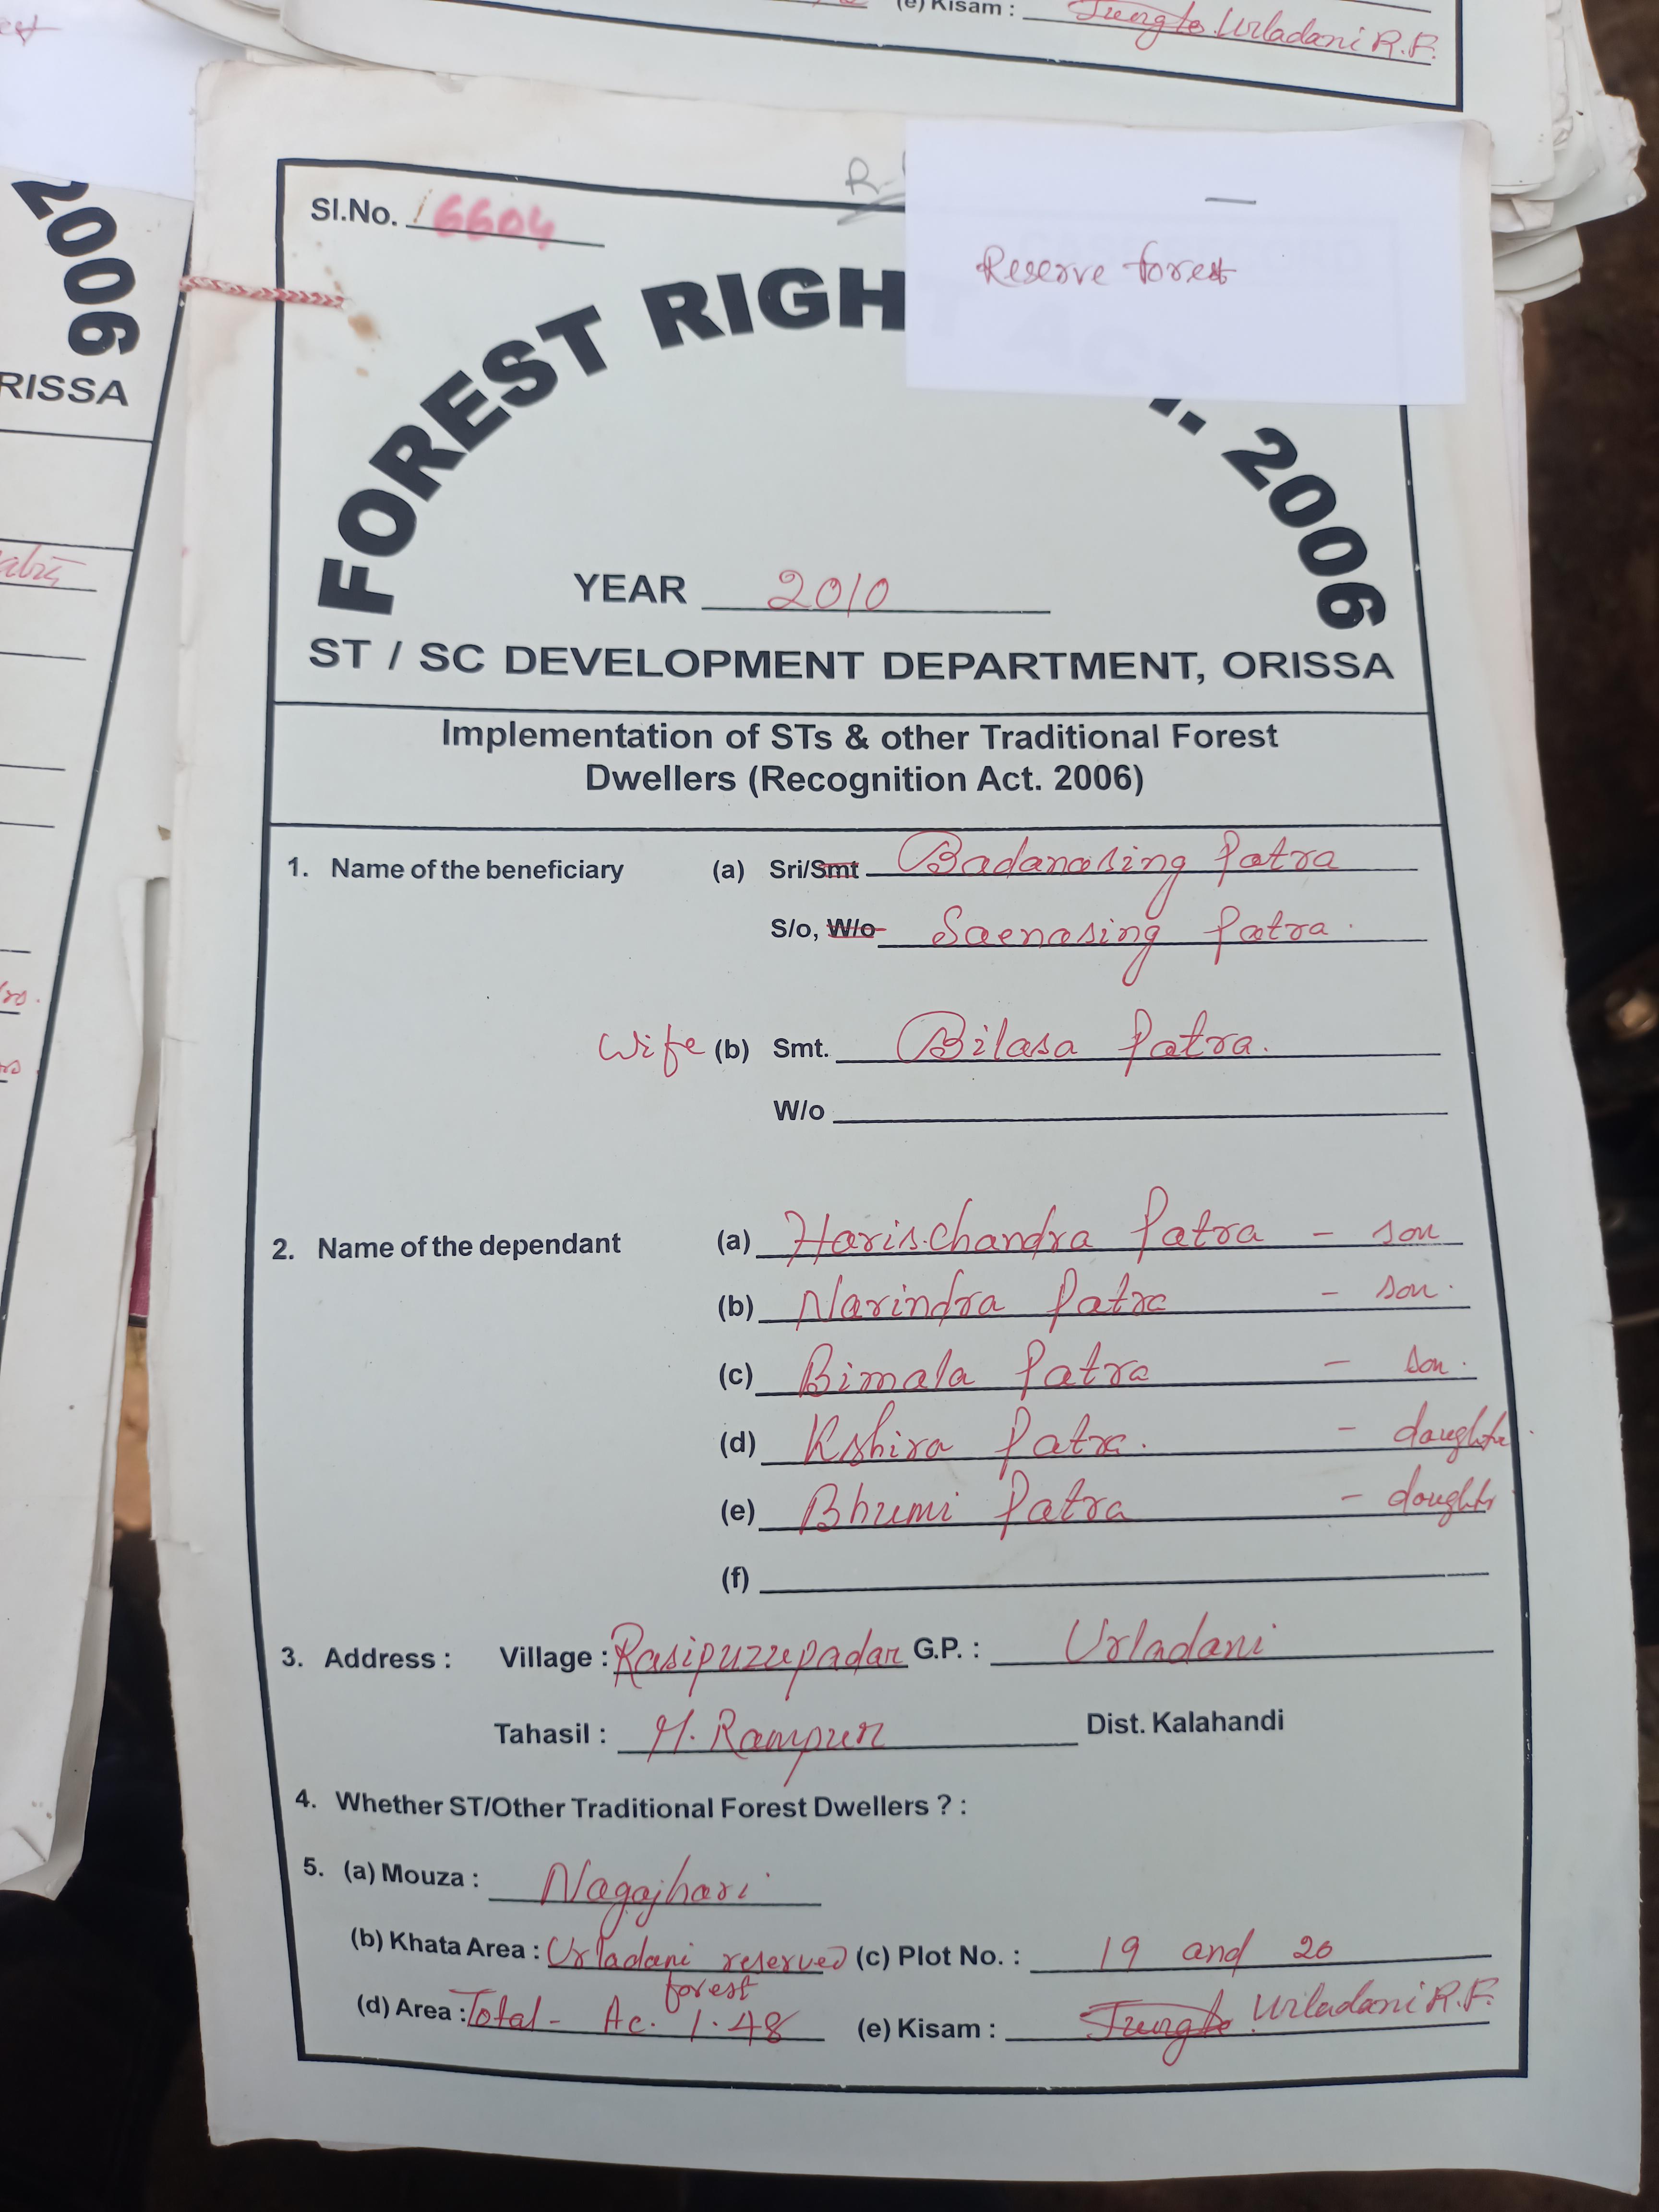 (e) Kisam : Jungle Urladani R.F.
2006
RISSA
R.
Reserve forest
Sl.No. 6604
FOREST RIGH
. 2006
YEAR 2010
ST / SC DEVELOPMENT DEPARTMENT, ORISSA
Implementation of STs & other Traditional Forest
Dwellers (Recognition Act. 2006)
1. Name of the beneficiary (a) Sri/Smt Badanasing Patra
S/o, W/o Saenasing Patra.
Wife (b) Smt. Bilasa Patra.
W/o
2. Name of the dependant (a) Harischandra Patra - son
(b) Narindra Patra - son.
(c) Bimala Patra - son.
(d) Kshira Patra. - daughter
(e) Bhumi Patra - doughter
(f)
3. Address : Village : Rasipuzzepadar G.P. : Urladani
Tahasil : M. Rampur Dist. Kalahandi
4. Whether ST/Other Traditional Forest Dwellers ? :
5. (a) Mouza : Nagajhari
(b) Khata Area : Urladani reserved forest (c) Plot No. : 19 and 20
(d) Area : Total - Ac. 1.48 (e) Kisam : Jungle Urladani R.F.